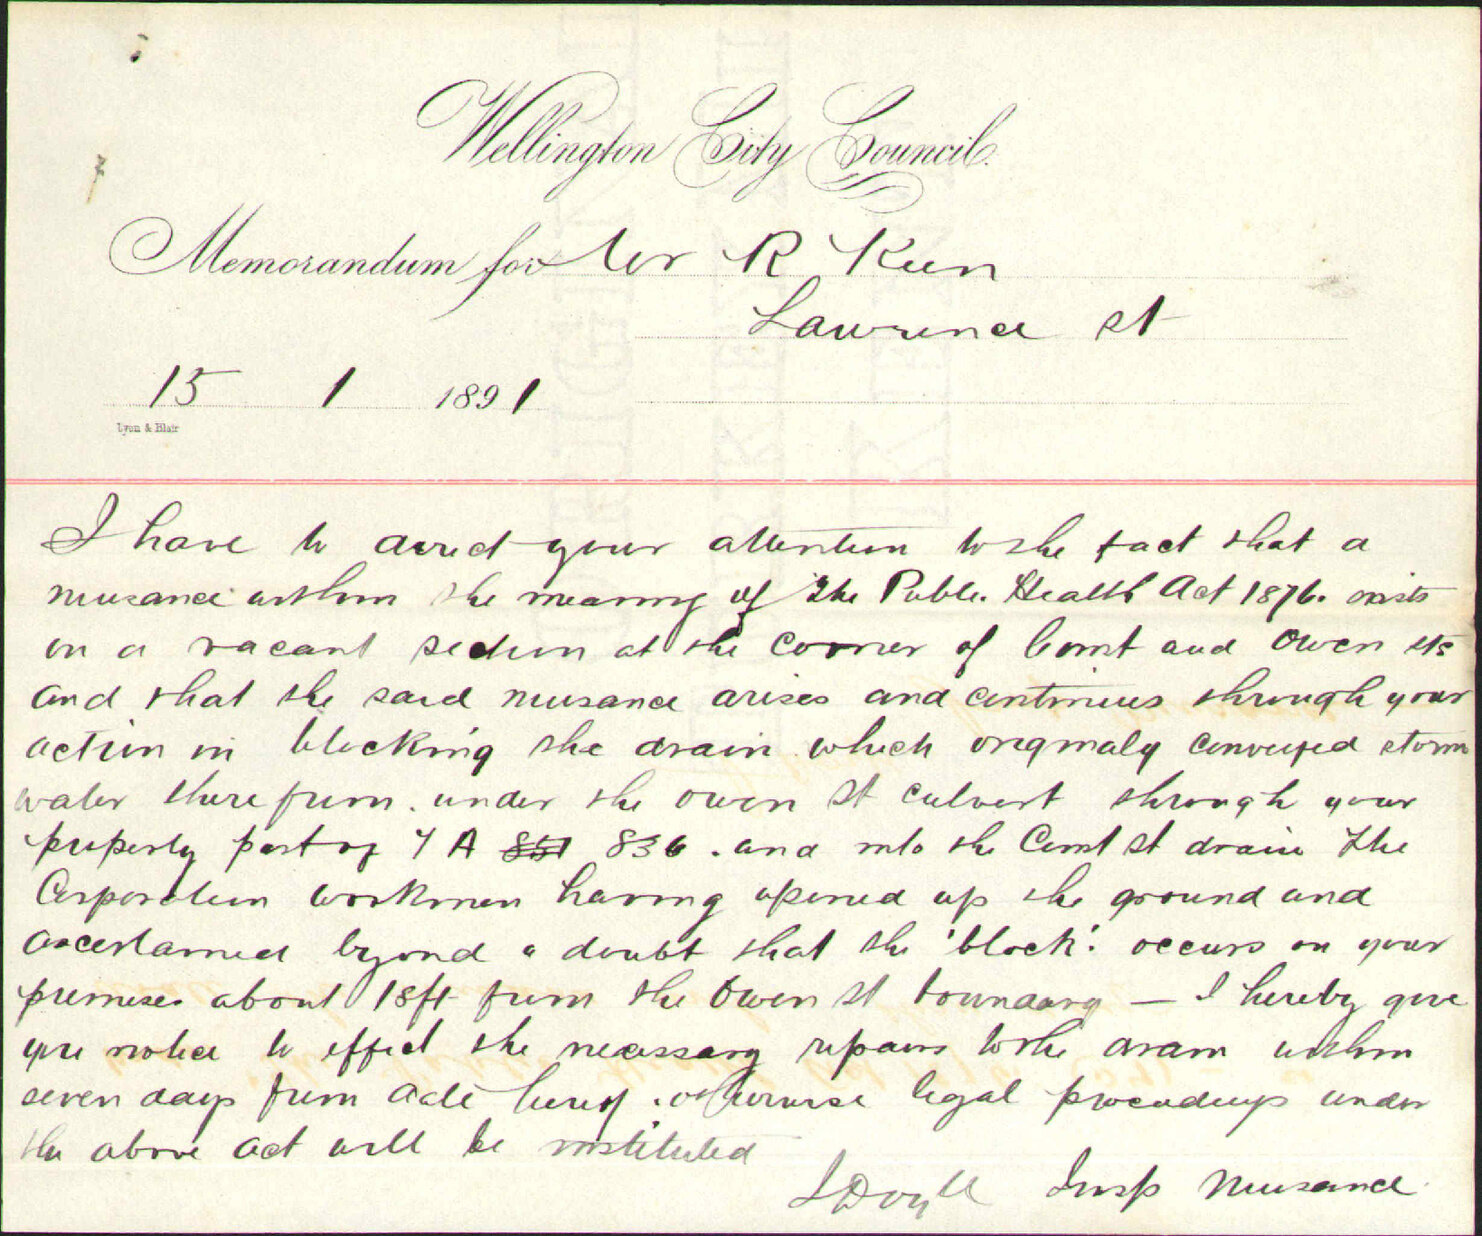 Wellington City Council.
Memorandum for Mr R Keen
Lawrence St
15 1 1891
Lyon & Blair
I have to direct your attention to the fact that a
nuisance within the meaning of The Public Health Act 1876. exists
on a vacant section at the corner of Const and Owen Sts
and that the said nuisance arises and continues through your
action in blocking the drain which originaly conveyed storm
water therefrom. under the Owen St culvert through your
property part of T A 851 836. and into the Const St drain The
Corporation workmen having opened up the ground and
ascertained beyond a doubt that the 'block' occurs on your
premises about 18ft from the Owen St boundary — I hereby give
you notice to effect the necessary repairs to the drain within
seven days from date hereof. otherwise legal proceedings under
the above act will be instituted
J Doyle Insp Nuisance